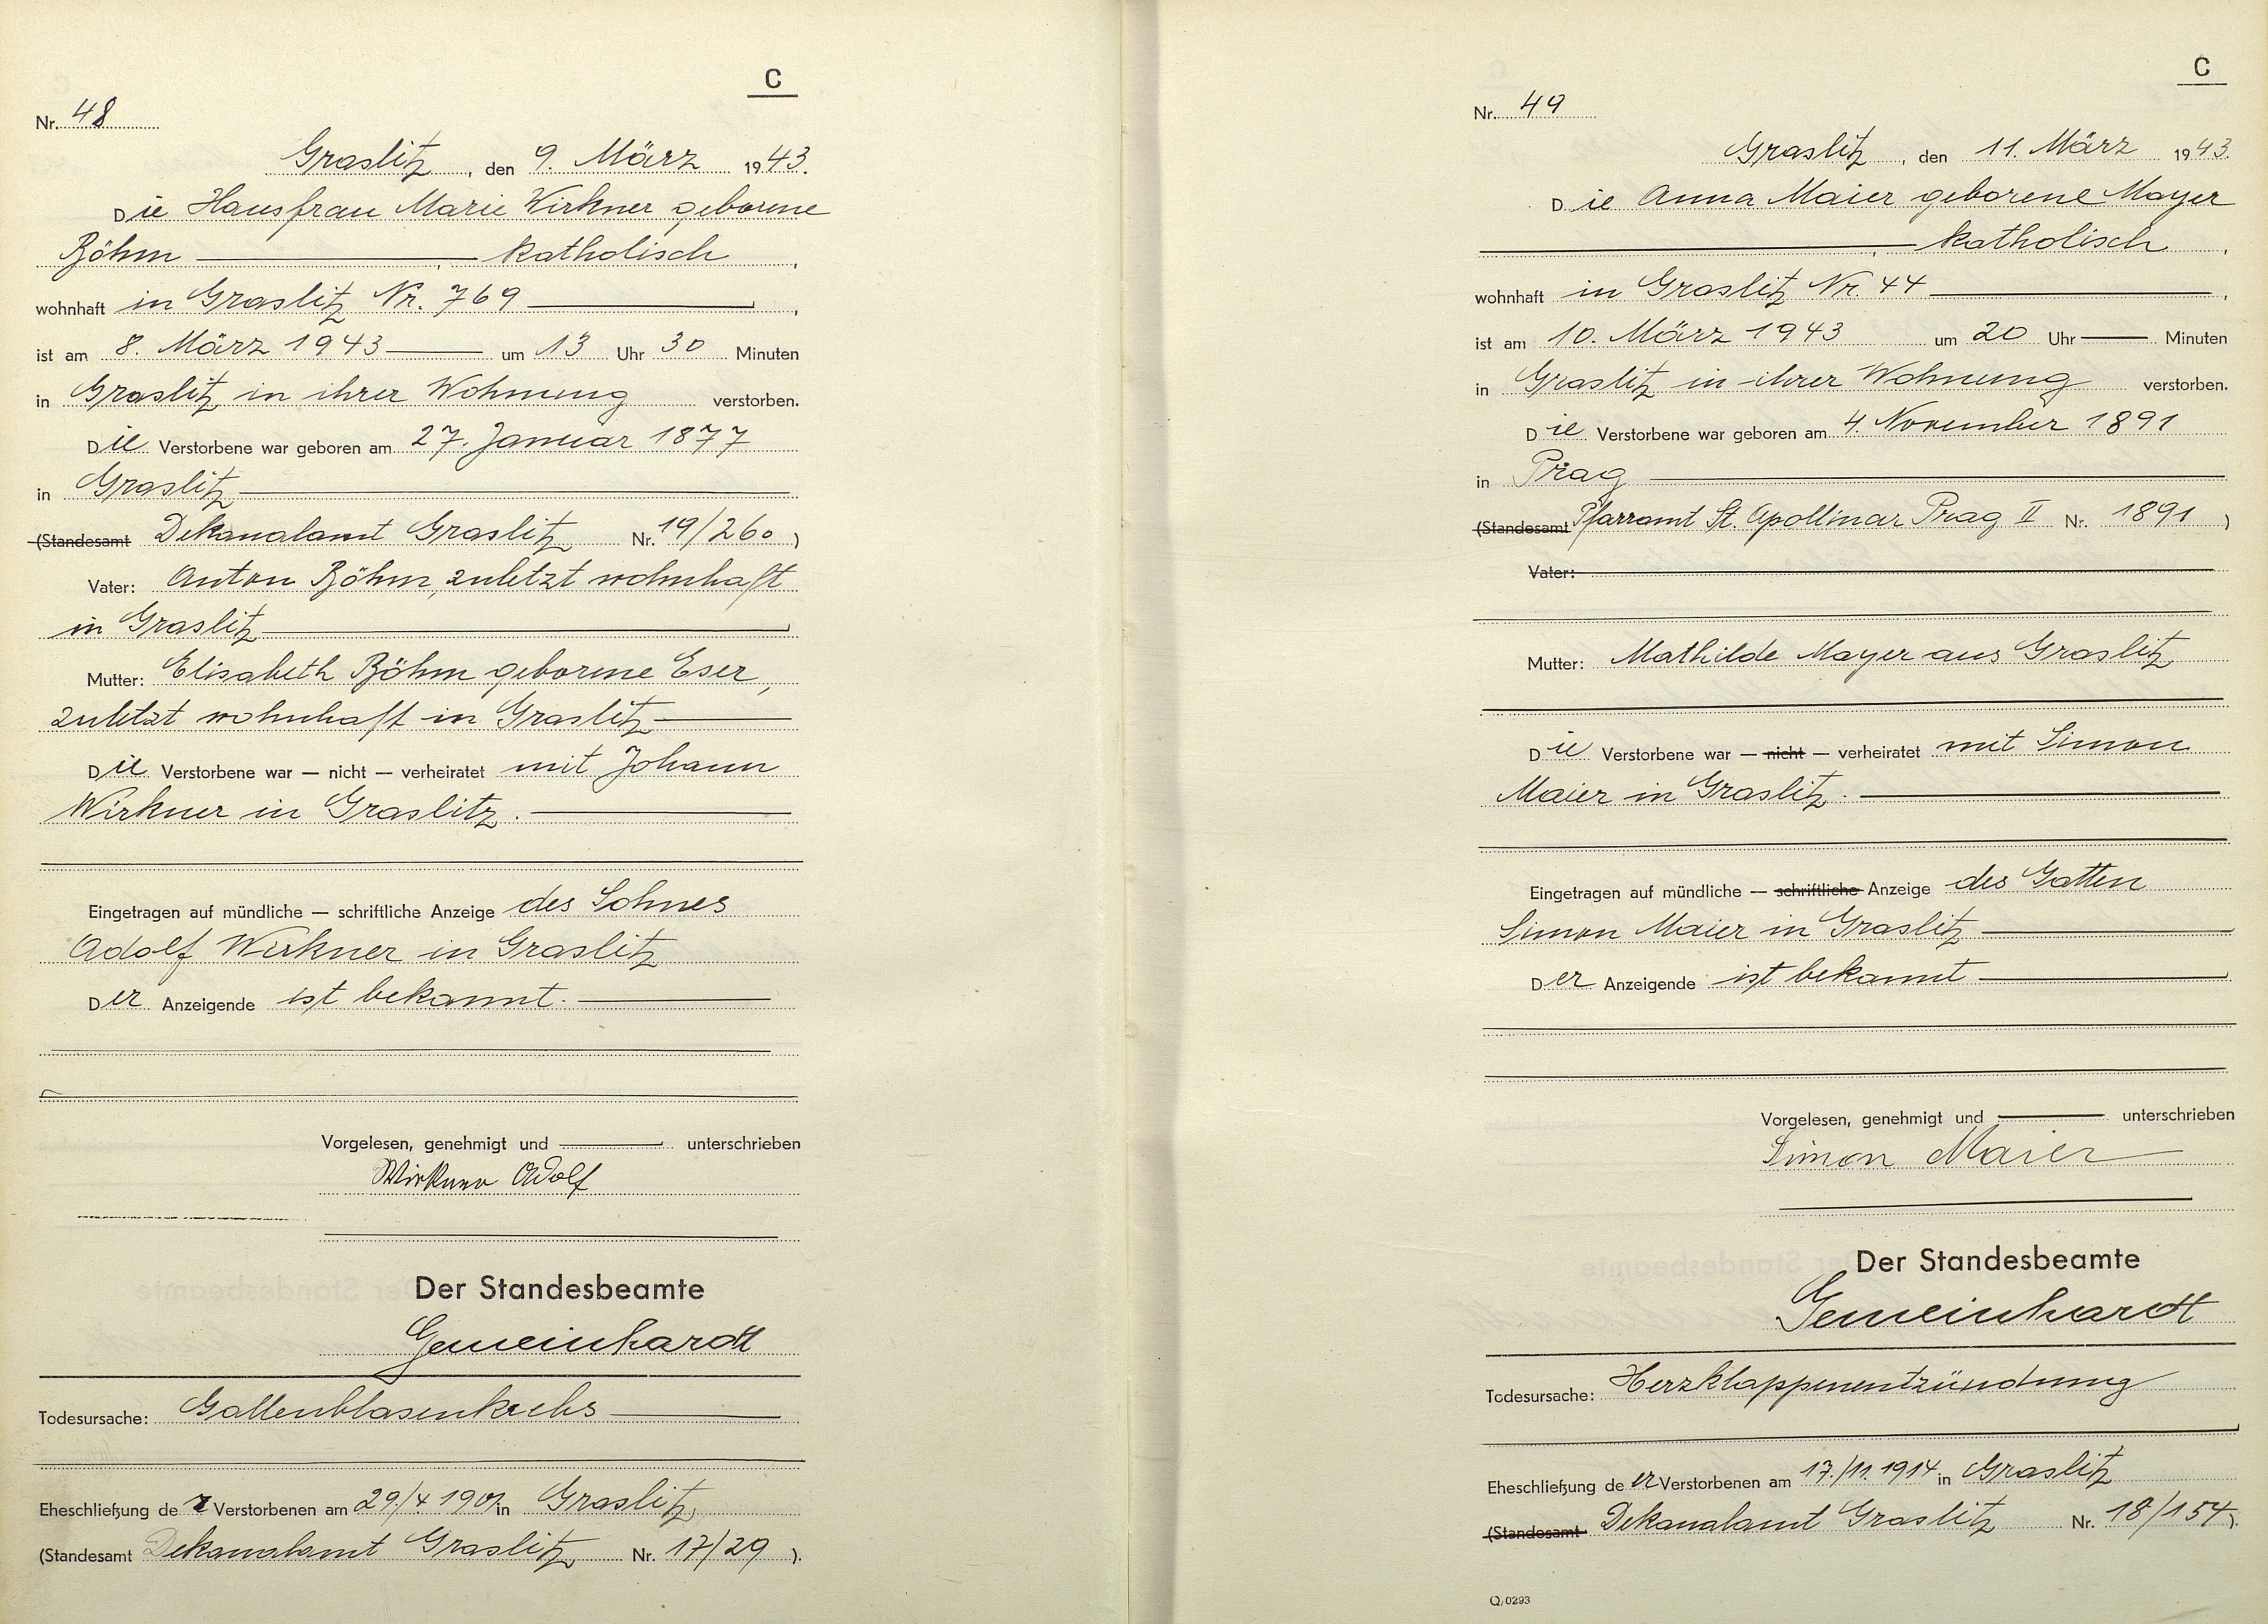 C
Nr. 48
Graslitz, den 9. März 1943.
Die Hausfrau Marie Wirkner geborene
Böhm, katholisch,
wohnhaft in Graslitz Nr. 769,
ist am 8. März 1943 um 13 Uhr 30 Minuten
in Graslitz in ihrer Wohnung verstorben.
Die Verstorbene war geboren am 27. Januar 1877
in Graslitz
(Standesamt Dekanalamt Graslitz Nr. 19/260)
Vater: Anton Böhm, zuletzt wohnhaft
in Graslitz
Mutter: Elisabeth Böhm geborene Eser,
zuletzt wohnhaft in Graslitz
Die Verstorbene war — nicht — verheiratet mit Johann
Wirkner in Graslitz.
Eingetragen auf mündliche — schriftliche Anzeige des Sohnes
Adolf Wirkner in Graslitz
Der Anzeigende ist bekannt.
Vorgelesen, genehmigt und unterschrieben
Wirkner Adolf
Der Standesbeamte
Gemeinhardt
Todesursache: Gallenblasenkrebs
Eheschließung der Verstorbenen am 29./4. 1901 in Graslitz
(Standesamt Dekanalamt Graslitz Nr. 17/29).
C
Nr. 49
Graslitz, den 11. März 1943.
Die Anna Maier geborene Mayer
, katholisch,
wohnhaft in Graslitz Nr. 44,
ist am 10. März 1943 um 20 Uhr Minuten
in Graslitz in ihrer Wohnung verstorben.
Die Verstorbene war geboren am 4. November 1891
in Prag
(Standesamt Pfarramt St. Apollinar Prag II Nr. 1891)
Vater:
Mutter: Mathilde Mayer aus Graslitz
Die Verstorbene war — nicht — verheiratet mit Simon
Maier in Graslitz.
Eingetragen auf mündliche — schriftliche Anzeige des Gatten
Simon Maier in Graslitz
Der Anzeigende ist bekannt
Vorgelesen, genehmigt und unterschrieben
Simon Maier
Der Standesbeamte
Gemeinhardt
Todesursache: Herzklappenentzündung
Eheschließung der Verstorbenen am 17./11. 1914 in Graslitz
(Standesamt Dekanalamt Graslitz Nr. 18/154).
Q/0293